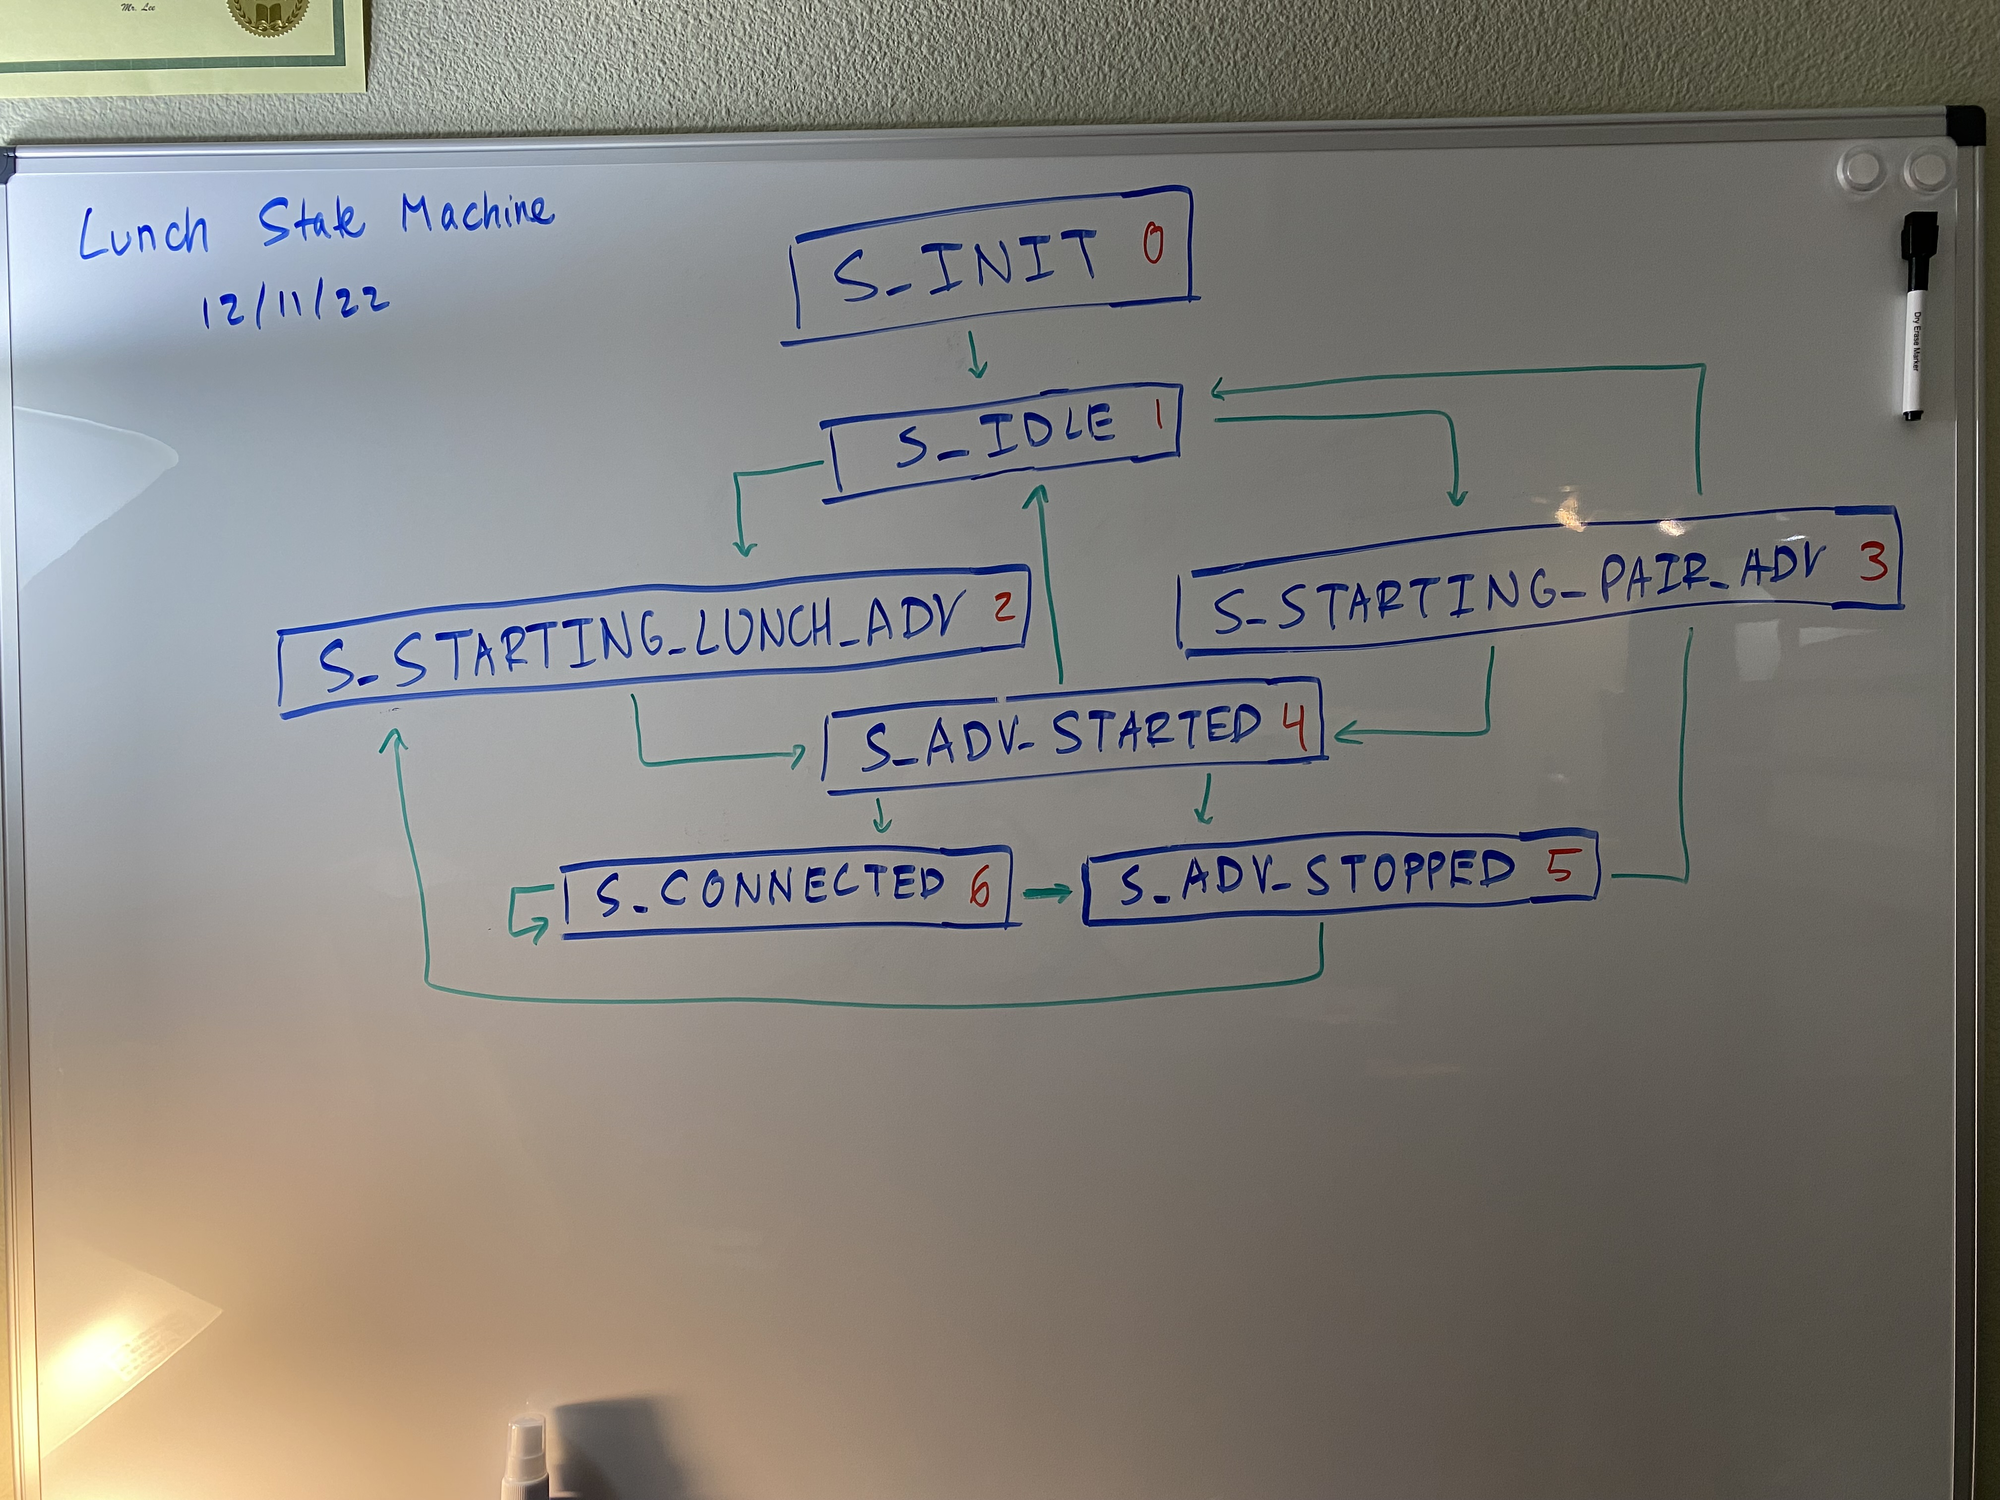 Mr. Lee
Lunch State Machine
12/11/22
S_INIT 0
S_IDLE 1
S_STARTING_LUNCH_ADV 2
S_STARTING_PAIR_ADV 3
S_ADV_STARTED 4
S_CONNECTED 6
S_ADV_STOPPED 5
Dry Erase Marker